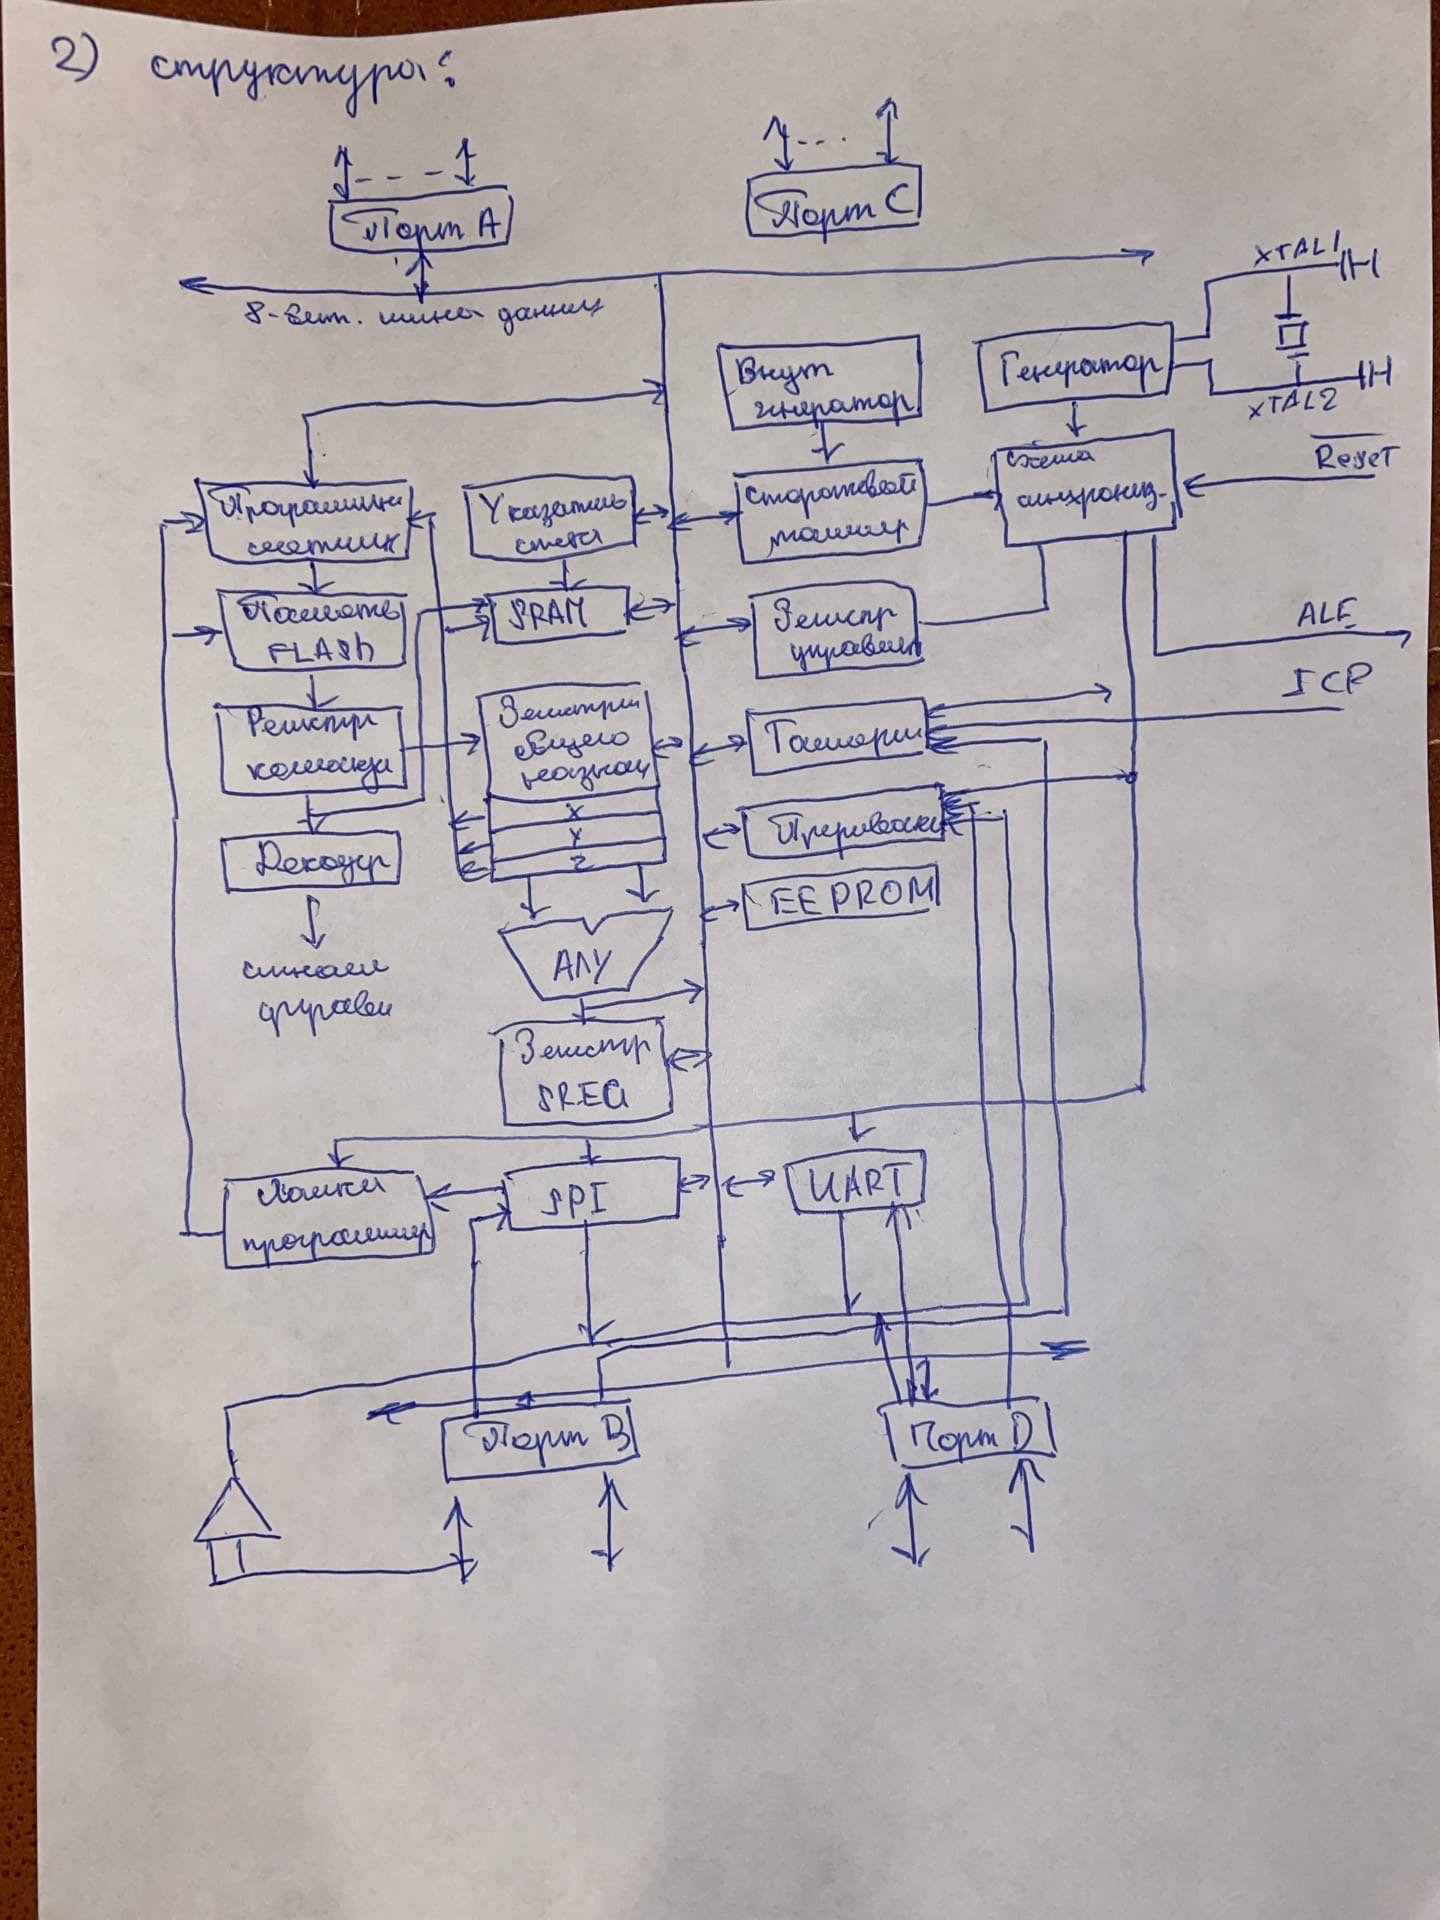 2) структура:
Порт A
Порт C
8-бит. шина данных
XTAL1
Внут
генератор
Генератор
XTAL2
Reset
Программн
счетчик
Указатель
стека
Сторожевой
таймер
схема
синхрониз.
Память
FLASH
SRAM
Регистр
управлен
ALE
ICP
Регистр
команд
Регистры
общего
назнач
X
Y
Z
Таймеры
Прерыван
Декодер
EEPROM
сигналы
управлен
АЛУ
Регистр
SREG
Логика
программир
SPI
UART
Порт B
Порт D